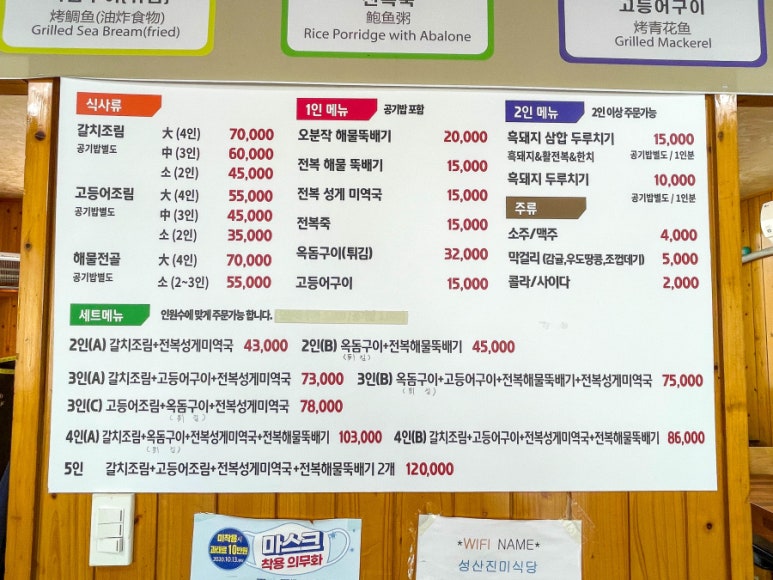 烤鲷鱼(油炸食物)
Grilled Sea Bream(fried)
전복죽
鲍鱼粥
Rice Porridge with Abalone
고등어구이
烤青花鱼
Grilled Mackerel
식사류
갈치조림 大 (4인) 70,000
공기밥별도 中 (3인) 60,000
소 (2인) 45,000
고등어조림 大 (4인) 55,000
공기밥별도 中 (3인) 45,000
소 (2인) 35,000
해물전골 大 (4인) 70,000
공기밥별도 소 (2~3인) 55,000
1인 메뉴 공기밥 포함
오분작 해물뚝배기 20,000
전복 해물 뚝배기 15,000
전복 성게 미역국 15,000
전복죽 15,000
옥돔구이(튀김) 32,000
고등어구이 15,000
2인 메뉴 2인 이상 주문가능
흑돼지 삼합 두루치기 15,000
흑돼지&활전복&한치 공기밥별도 / 1인분
흑돼지 두루치기 10,000
공기밥별도 / 1인분
주류
소주/맥주 4,000
막걸리 (감귤,우도땅콩,조껍데기) 5,000
콜라/사이다 2,000
세트메뉴 인원수에 맞게 주문가능 합니다.
2인(A) 갈치조림+전복성게미역국 43,000 2인(B) 옥돔구이+전복해물뚝배기 45,000
(튀김)
3인(A) 갈치조림+고등어구이+전복성게미역국 73,000 3인(B) 옥돔구이+고등어구이+전복해물뚝배기+전복성게미역국 75,000
(튀김)
3인(C) 고등어조림+옥돔구이+전복성게미역국 78,000
(튀김)
4인(A) 갈치조림+옥돔구이+전복성게미역국+전복해물뚝배기 103,000 4인(B) 갈치조림+고등어구이+전복성게미역국+전복해물뚝배기 86,000
(튀김)
5인 갈치조림+고등어조림+전복성게미역국+전복해물뚝배기 2개 120,000
미착용시
과태료 10만원
2020.10.13.
마스크
착용 의무화
*WIFI NAME*
성산진미식당